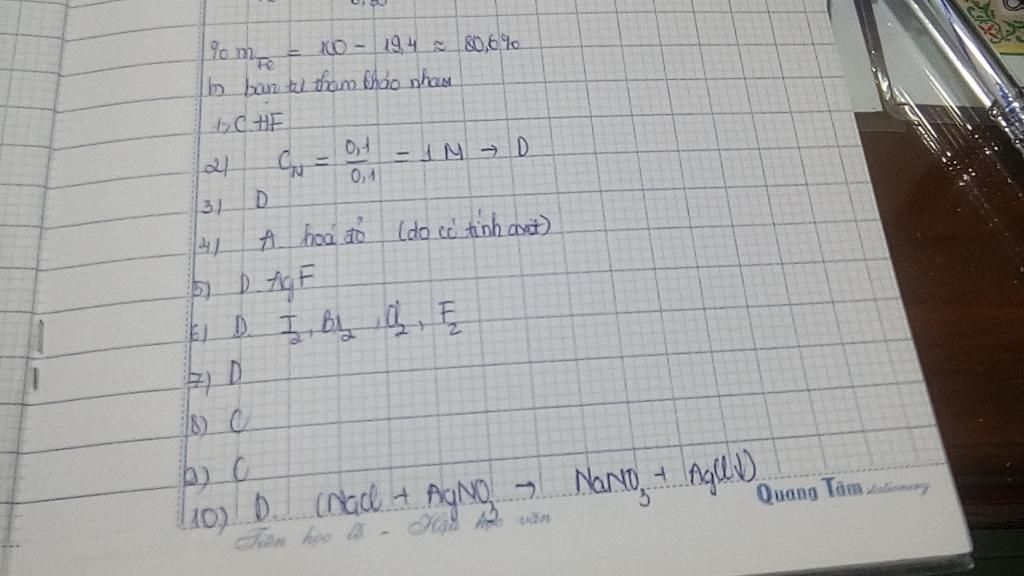 %m Fe = 100 - 19,4 ≈ 80,6%
b) bạn tự tham khảo nham
1) C HF
2) C_N = 0,1/0,1 = 1 M → D
3) D
4) A hoá đỏ (do có tính axit)
5) D AgF
6) D I2, Br2, Cl2, F2
7) D
8) C
9) C
10) D (NaCl + AgNO3 → NaNO3 + AgCl↓)
Quang Tâm stationery
Tiên học lễ - Hậu học văn